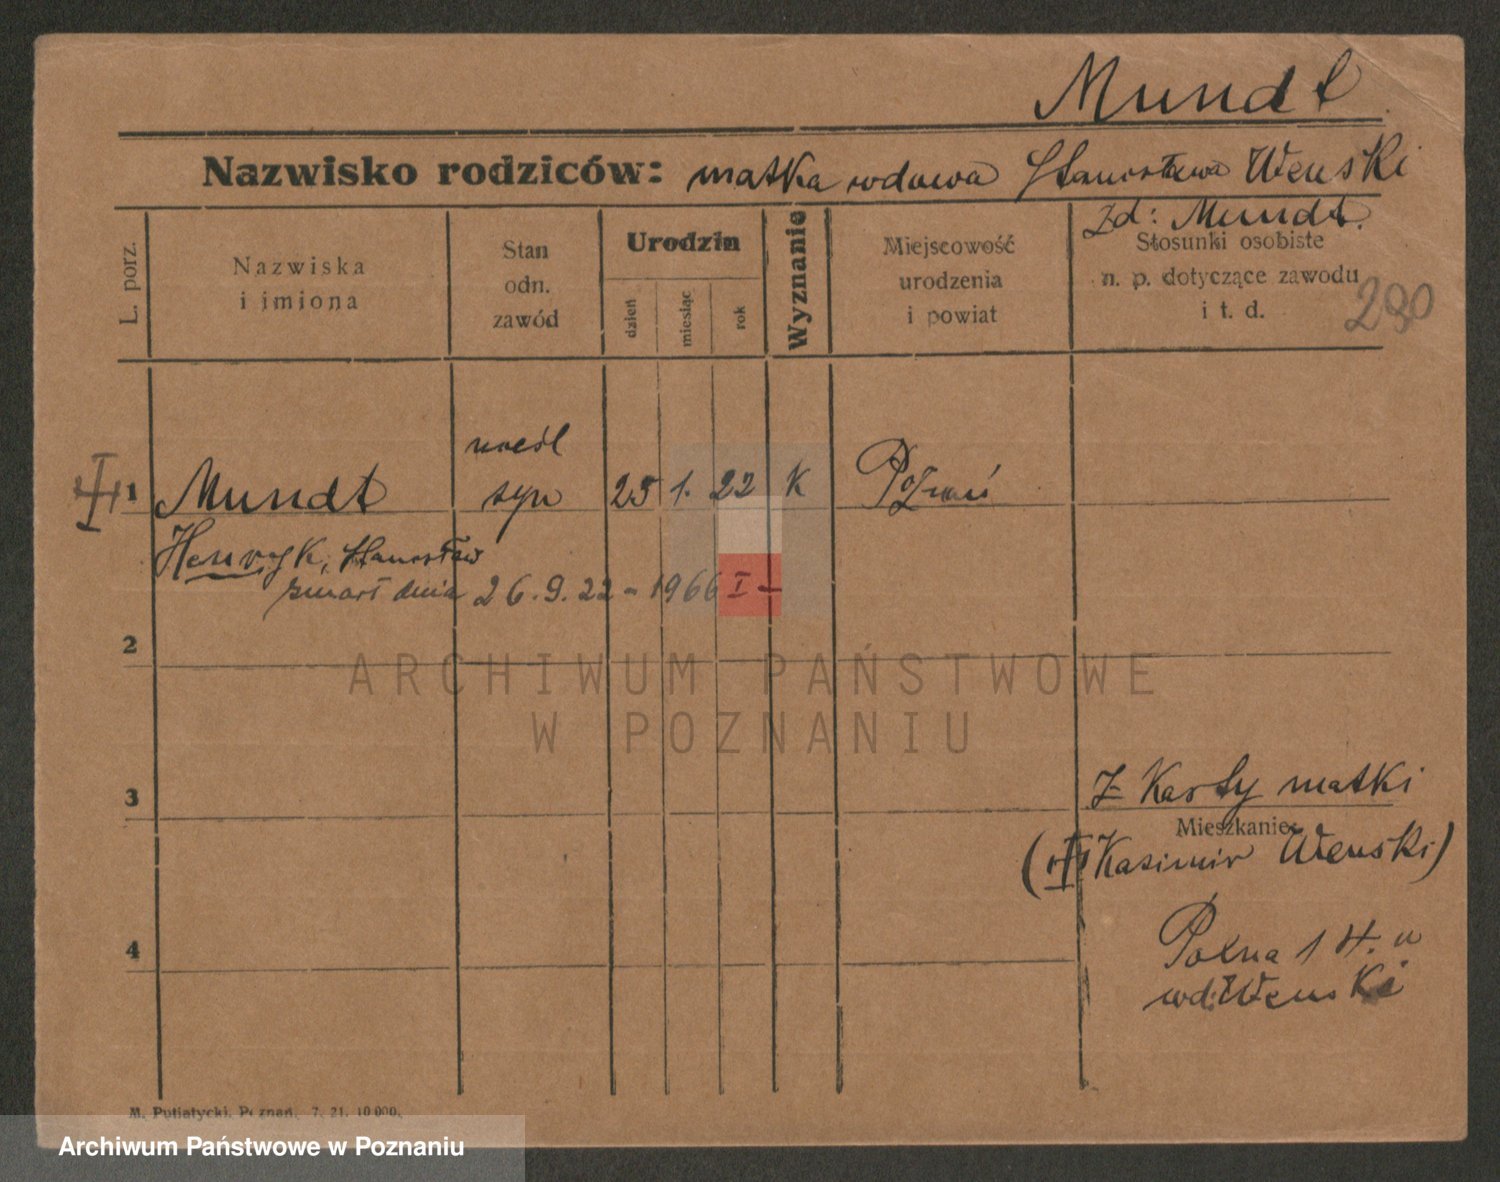 Mundt
Nazwisko rodziców: matka wdowa Stanisława Wenski
zd: Mundt.
L. porz.
Nazwiska
i imiona
Stan
odn.
zawód
Urodzin
dzień
miesiąc
rok
Wyznanie
Miejscowość
urodzenia
i powiat
Stosunki osobiste
n. p. dotyczące zawodu
i t. d.
290
1 Mundt
nieśl
syn
25 1. 22 K Poznań
Henryk, Stanisław
zmarł dnia 26.9.22 - 1966 I -
2
3
4
Z Karty matki
Mieszkanie:
( Kasimir Wenski)
Polna 1 H. u
wd: Wenski
M. Putiatycki, Poznań, 7. 21. 10 000.
ARCHIWUM PAŃSTWOWE
W POZNANIU
Archiwum Państwowe w Poznaniu